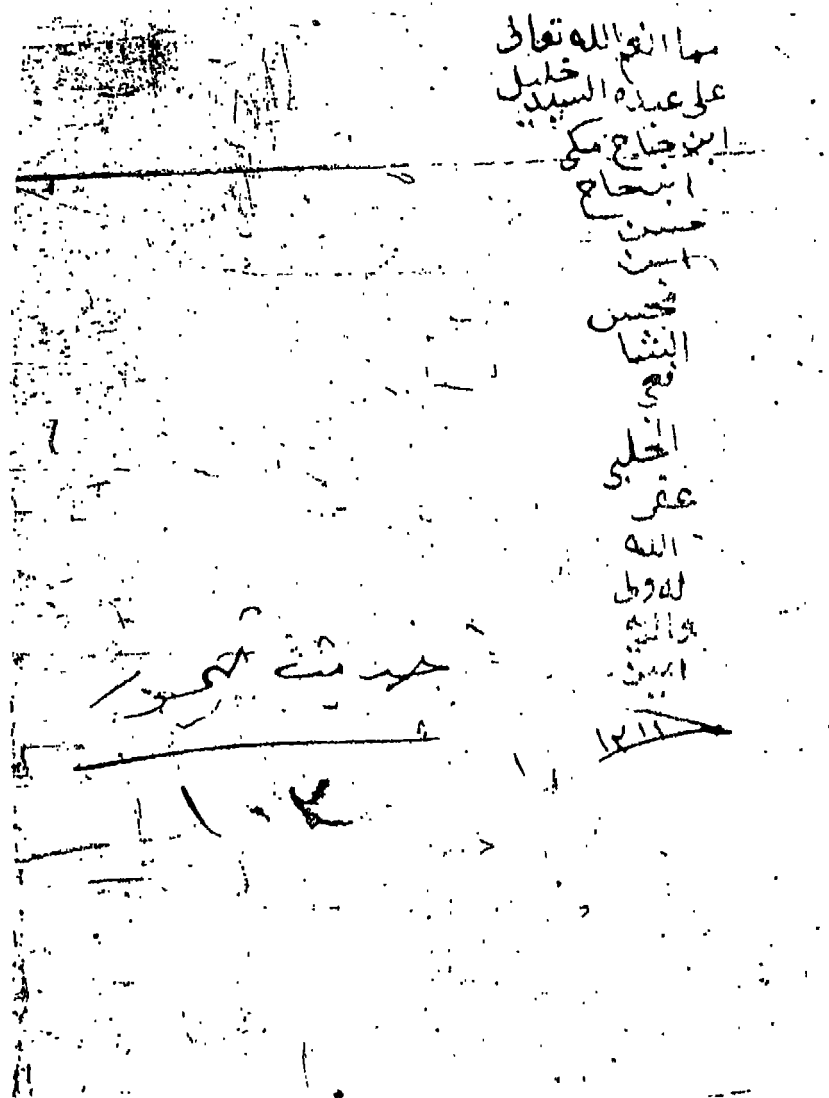 مما انعم الله تعالى
على عبده السيد خليل
ابن حاج مكي
ابن حاج
حسن
ابن
محسن
الشا
فعي
الحلبي
غفر
الله
له ول
والديه
امين
١٢١١
١٠٢